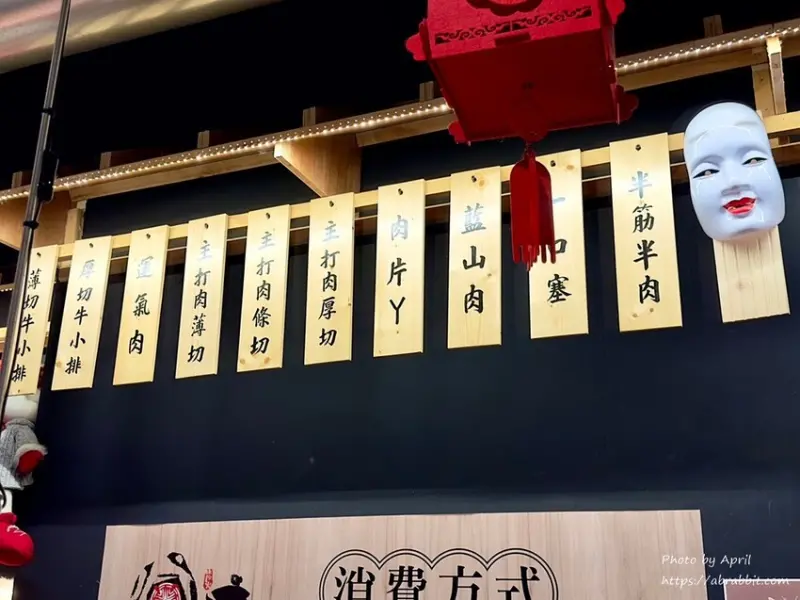 半筋半肉
一口塞
藍山肉
肉片丫
主打肉厚切
主打肉條切
主打肉薄切
運氣肉
厚切牛小排
薄切牛小排
消費方式
Photo by April
https://abrabbit.com